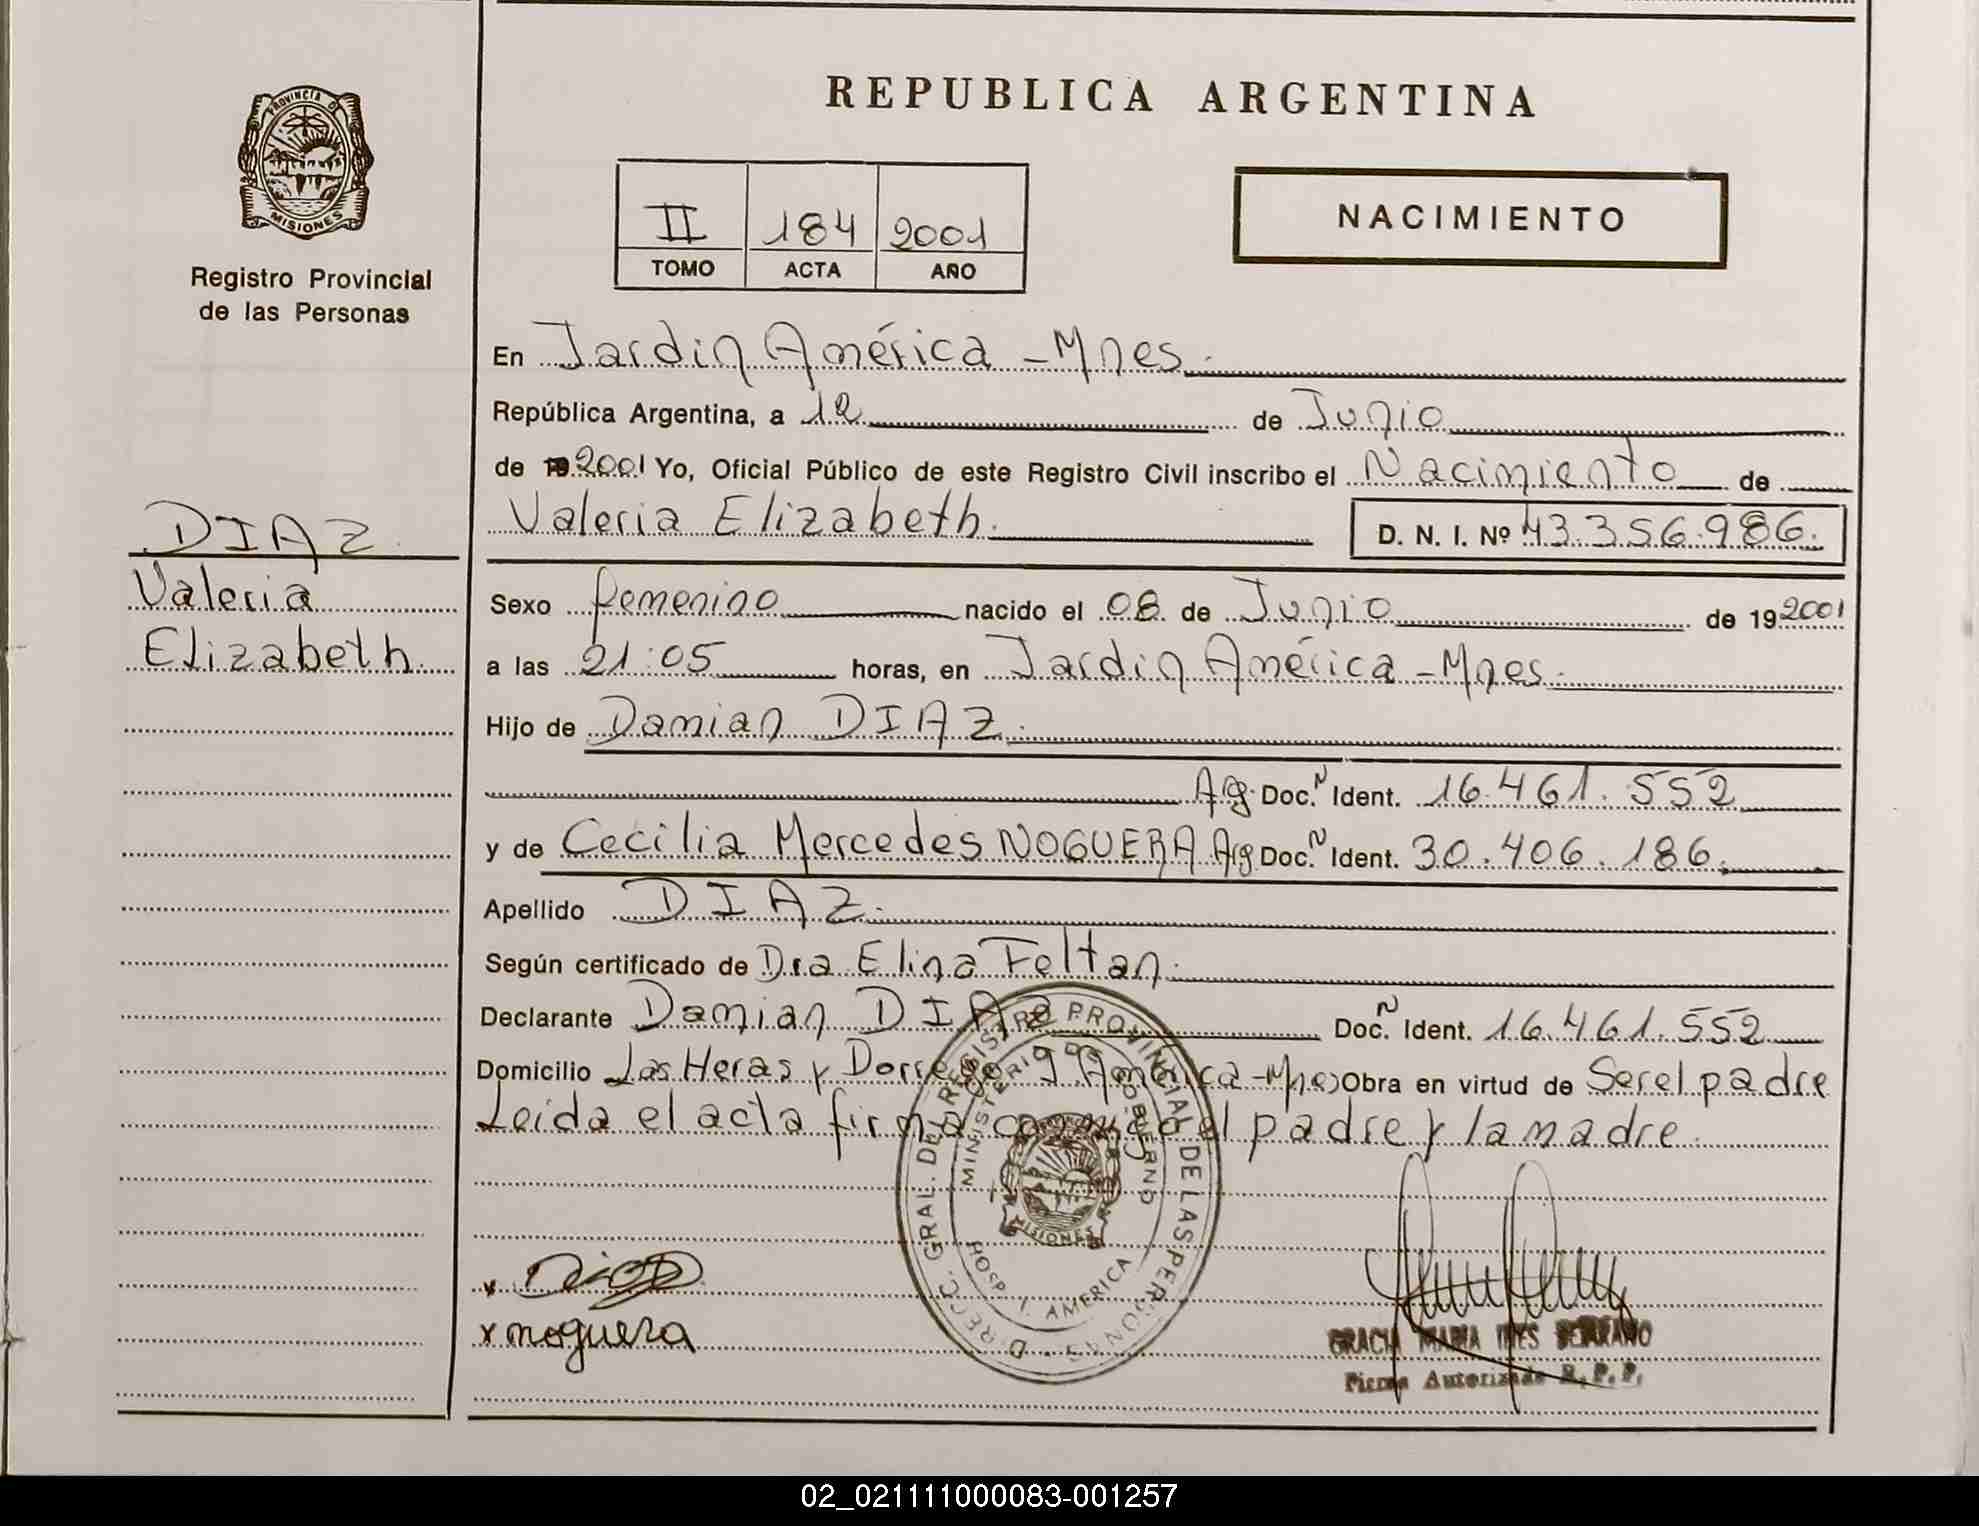 REPUBLICA ARGENTINA
PROVINCIA DE
MISIONES
Registro Provincial
de las Personas
II 184 2001
TOMO ACTA AÑO
NACIMIENTO
En Jardin América - Mnes.
República Argentina, a 12 de Junio
de 19 2001 Yo, Oficial Público de este Registro Civil inscribo el Nacimiento de
Valeria Elizabeth. D. N. I. Nº 43.356.986.
DIAZ.
Valeria
Elizabeth.
Sexo femenino nacido el 08 de Junio de 19 2001
a las 21:05 horas, en Jardin América - Mnes.
Hijo de Damian DIAZ.
Arg. Doc. N Ident. 16.461.552
y de Cecilia Mercedes NOGUERA Arg Doc. N Ident. 30.406.186.
Apellido DIAZ.
Según certificado de Dra Elina Feltan.
Declarante Damian DIAZ Doc. N Ident. 16.461.552
Domicilio Las Heras y Dorrego J. América - Mnes Obra en virtud de Ser el padre
Leida el acta firma conmigo el padre y la madre.
DIRECC. GRAL. DEL REGISTRO PROVINCIAL DE LAS PERSONAS
MINISTERIO DE GOBIERNO
MISIONES
HOSP. J. AMERICA
x Diaz
x noguera
GRACIA MARIA INES SERRANO
Firma Autorizada R. P. P.
02_021111000083-001257